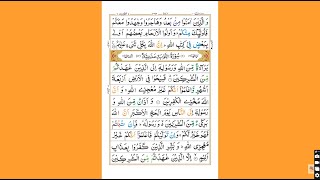 وَالَّذِيْنَ اٰمَنُوْا مِنْۢ بَعْدُ وَهَاجَرُوْا وَجٰهَدُوْا مَعَكُمْ
فَاُولٰٓئِكَ مِنْكُمْ ؕ وَاُولُوا الْاَرْحَامِ بَعْضُهُمْ اَوْلٰى
بِبَعْضٍ فِيْ كِتٰبِ اللّٰهِ ؕ اِنَّ اللّٰهَ بِكُلِّ شَيْءٍ عَلِيْمٌ
سُوْرَةُ التَّوْبَةِ مَدَنِيَّةٌ
بَرَآءَةٌ مِّنَ اللّٰهِ وَرَسُوْلِهٖٓ اِلَى الَّذِيْنَ عٰهَدْتُّمْ
مِّنَ الْمُشْرِكِيْنَ ؕ فَسِيْحُوْا فِي الْاَرْضِ اَرْبَعَةَ
اَشْهُرٍ وَّاعْلَمُوْٓا اَنَّكُمْ غَيْرُ مُعْجِزِي اللّٰهِ ۙ وَاَنَّ
اللّٰهَ مُخْزِي الْكٰفِرِيْنَ وَاَذَانٌ مِّنَ اللّٰهِ
وَرَسُوْلِهٖٓ اِلَى النَّاسِ يَوْمَ الْحَجِّ الْاَكْبَرِ اَنَّ
اللّٰهَ بَرِيْٓءٌ مِّنَ الْمُشْرِكِيْنَ ۙ وَرَسُوْلُهٗ ؕ فَاِنْ تُبْتُمْ
فَهُوَ خَيْرٌ لَّكُمْ ۚ وَاِنْ تَوَلَّيْتُمْ فَاعْلَمُوْٓا اَنَّكُمْ غَيْرُ
مُعْجِزِي اللّٰهِ ؕ وَبَشِّرِ الَّذِيْنَ كَفَرُوْا بِعَذَابٍ
اَلِيْمٍ اِلَّا الَّذِيْنَ عٰهَدْتُّمْ مِّنَ الْمُشْرِكِيْنَ